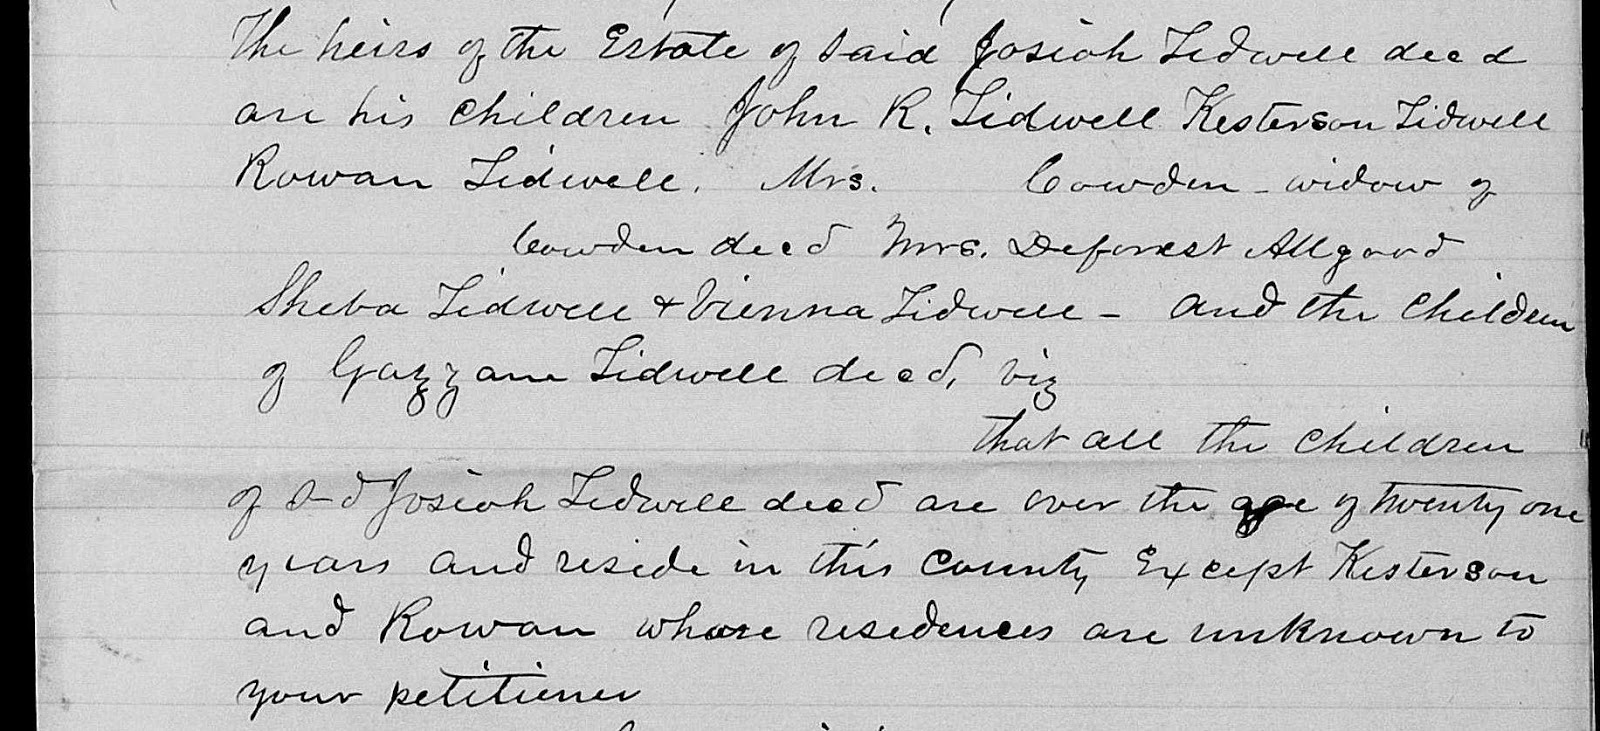 The heirs of the Estate of said Josiah Tidwell decd
are his children John R. Tidwell Kesterson Tidwell
Rowan Tidwell. Mrs. Cowden - widow of
Cowden decd Mrs. Deforest Allgood
Sheba Tidwell + Vienna Tidwell - and the children
of Gazzane Tidwell decd, viz
that all the children
of sd Josiah Tidwell decd are over the age of twenty one
years and reside in this County Except Kesterson
and Rowan whose residences are unknown to
your petitioner